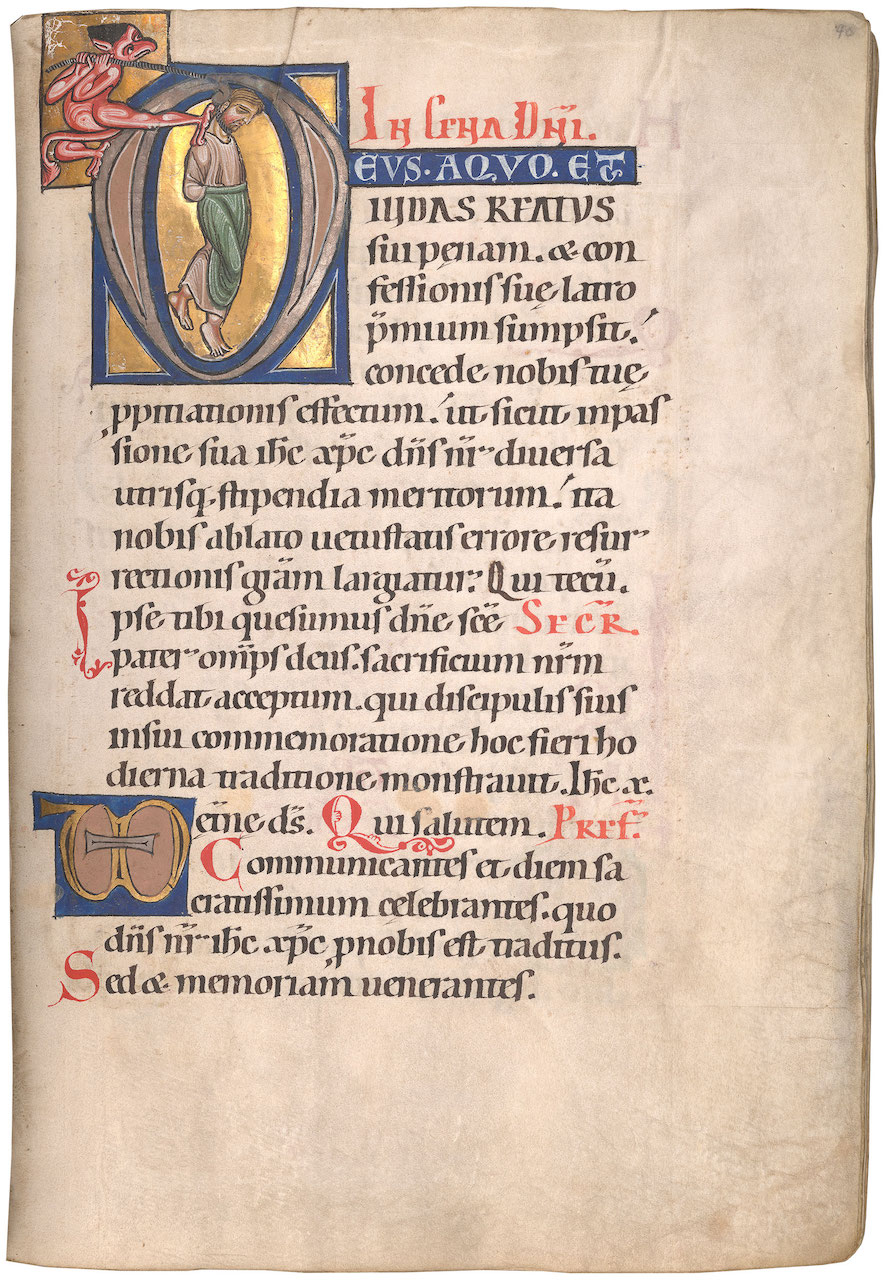 46
In Cena Dn̄i.
DEUS·AQUO·ET
IUDAS REATUS
sui penam. & con
fessionis suę latro
p̄mium sumpsit.
concede nobis tuę
ꝓpitiationis effectum. ut sicut inpas
sione sua ih̄c xp̄c dn̄s nr̄ diuersa
utrisq; stipendia meritorum. ita
nobis ablato uetustatis errore resur
rectionis grām largiatur. Qui tecū.
Ipse tibi quesumus dn̄e scē SECR̄.
pater omīps deus. sacrificium nr̄m
reddat acceptum. qui discipulis suis
insui commemoratione hoc fieri ho
dierna traditione monstrauit. Ih̄c x.
VD etīne ds̄. Qui salutem. PREF̄.
Communicantes et diem sa
cratissimum cęlebrantes. quo
dn̄s nr̄ ih̄c xp̄c ꝓnobis est traditus.
Sed & memoriam uenerantes.